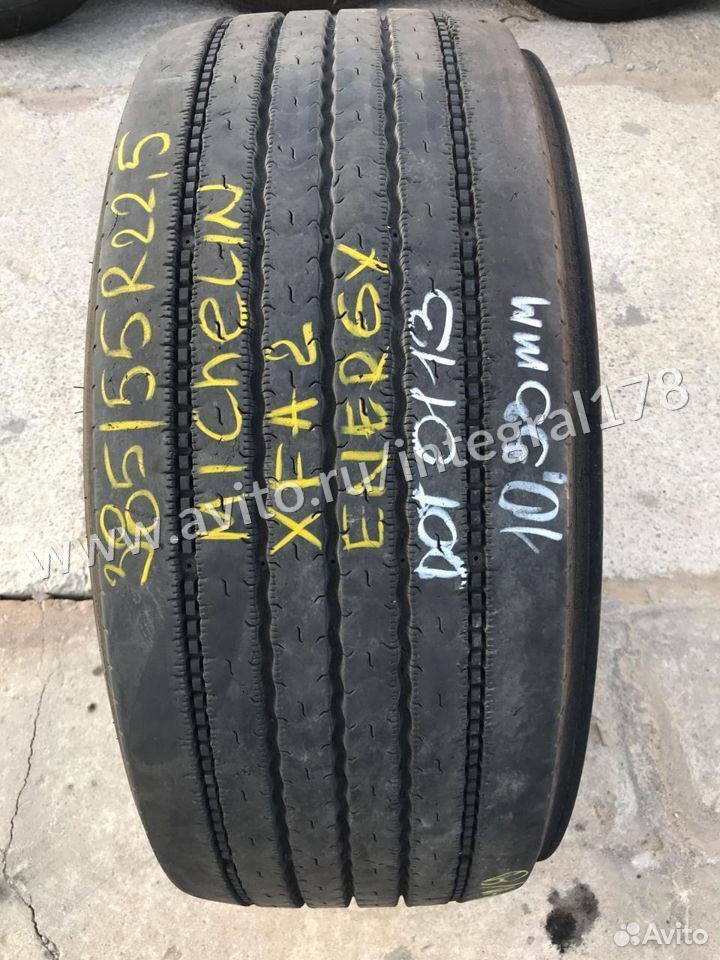 385/55R22,5
MIChELIN
XFA2
ENERGX
DOT 0113
10,50mm
www.avito.ru/integral178
Avito